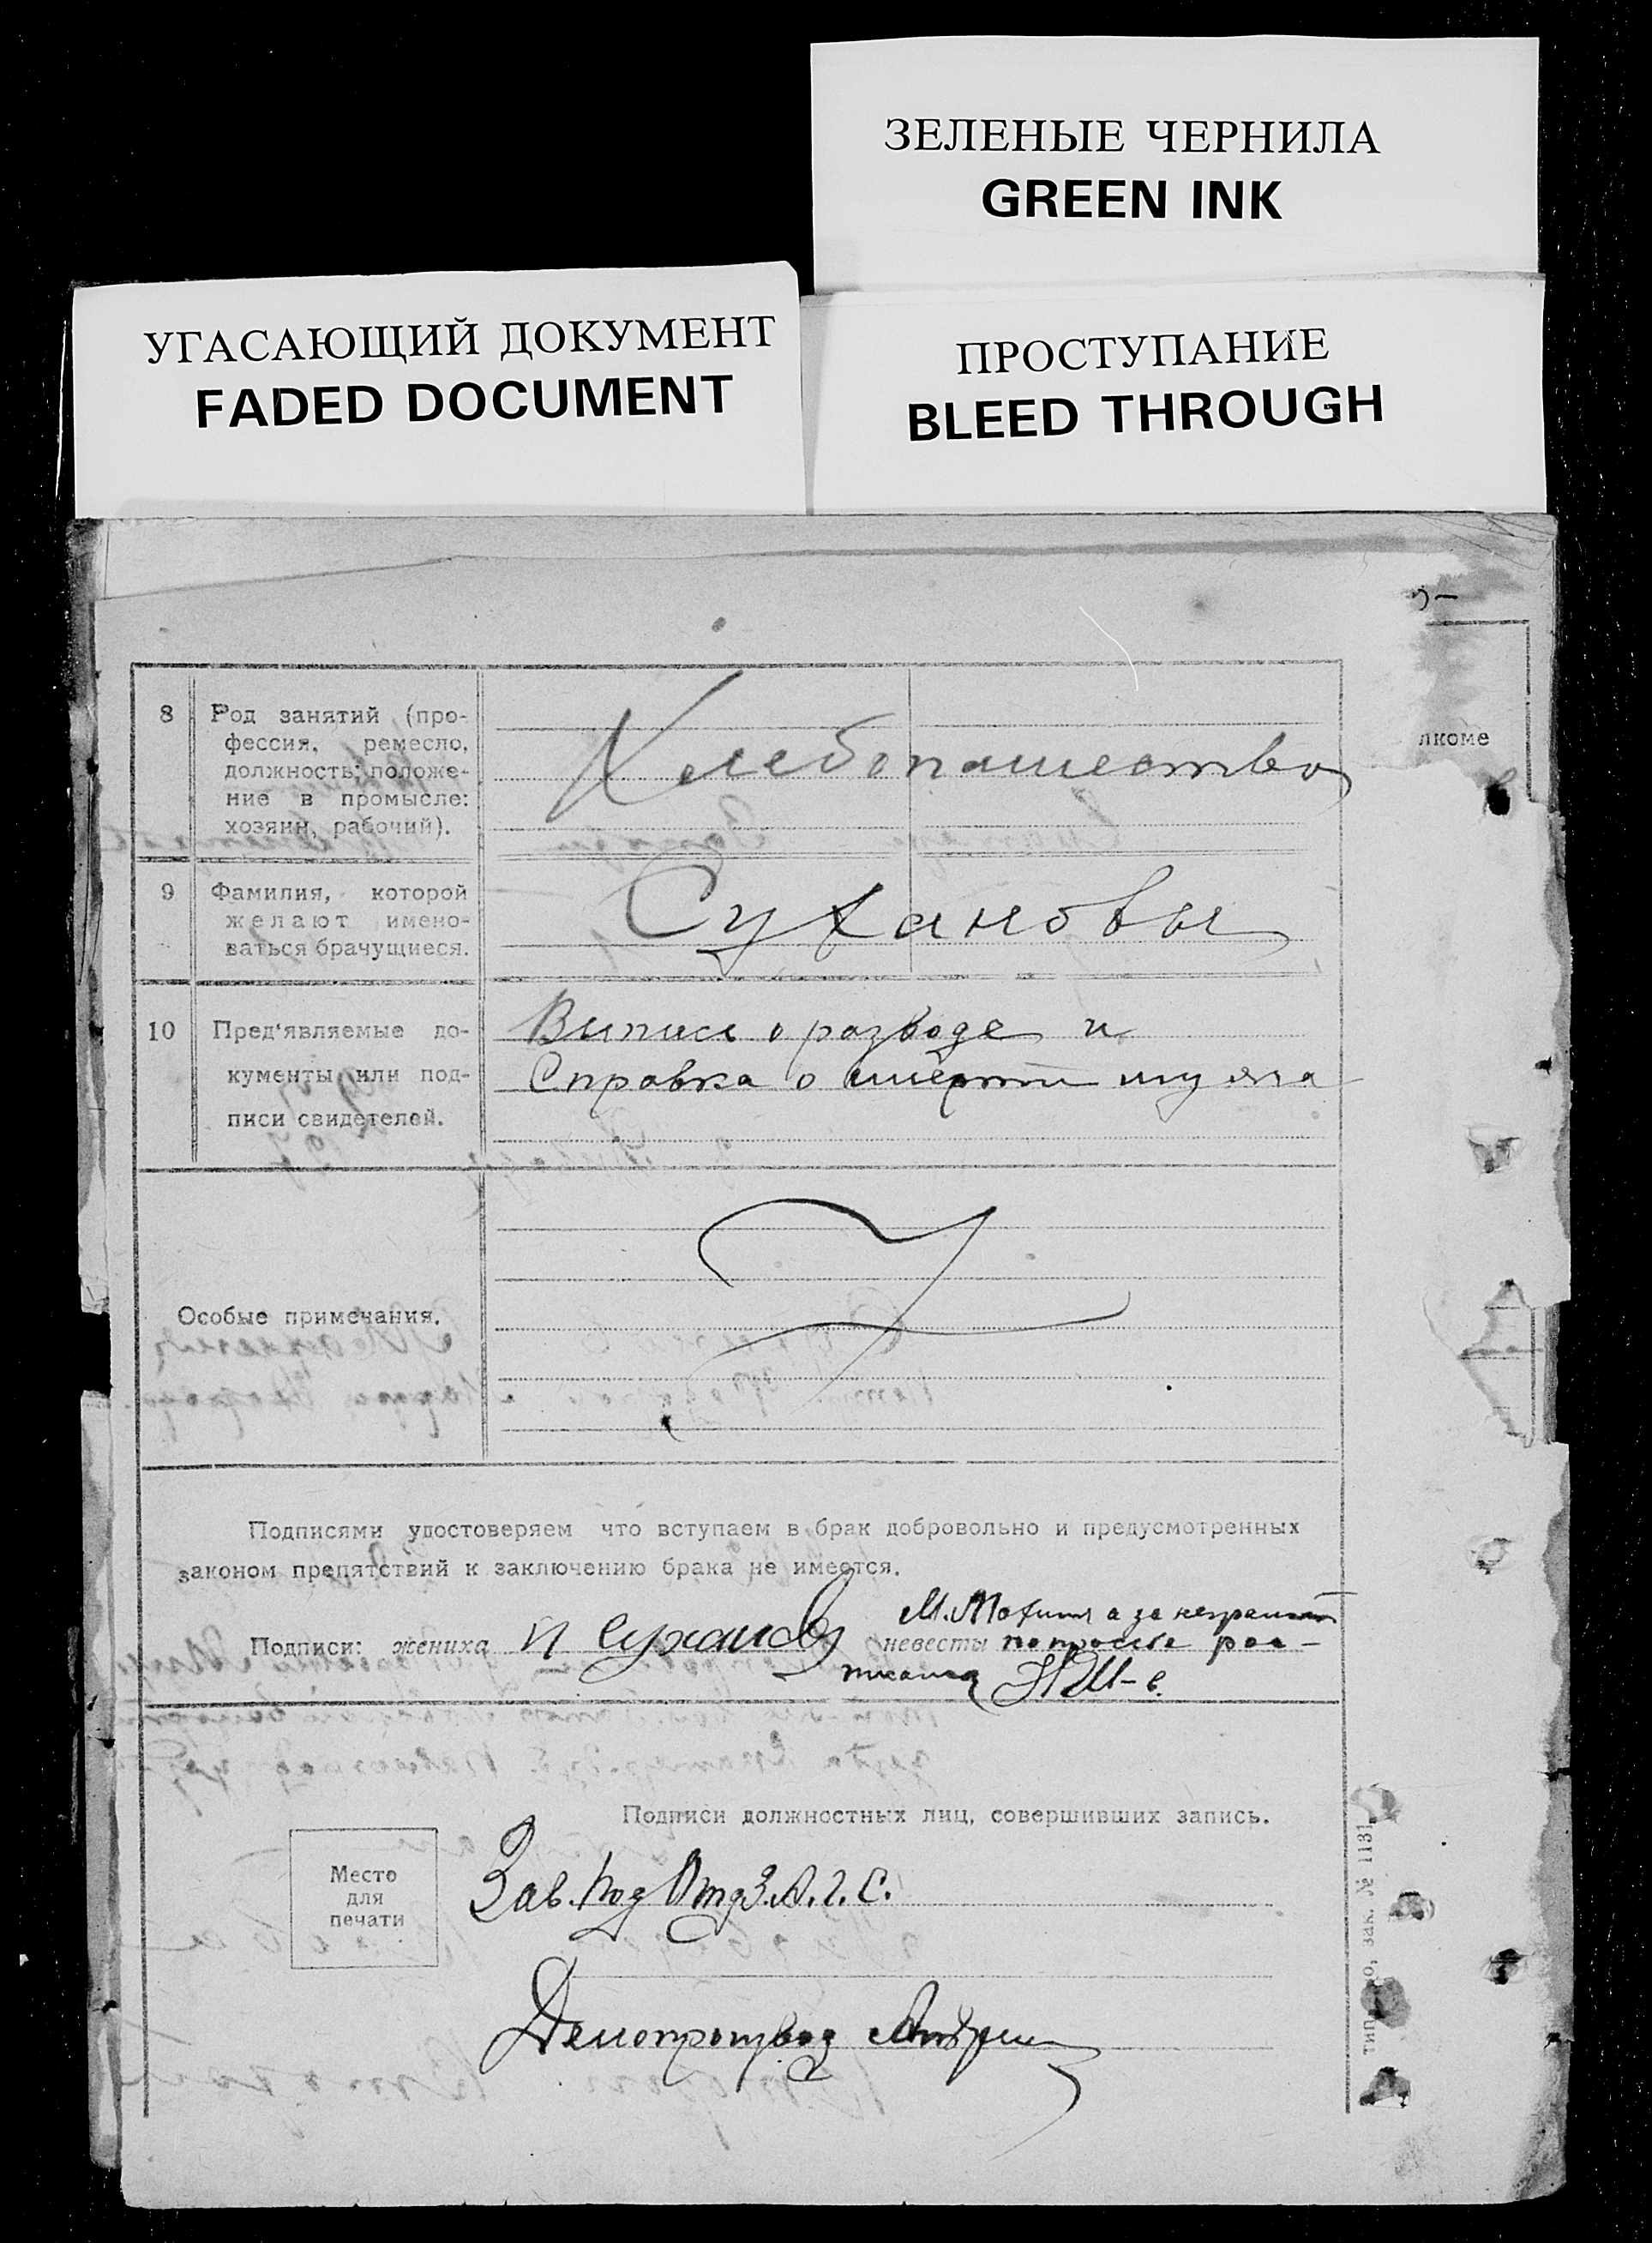 ЗЕЛЕНЫЕ ЧЕРНИЛА
GREEN INK
УГАСАЮЩИЙ ДОКУМЕНТ
FADED DOCUMENT
ПРОСТУПАНИЕ
BLEED THROUGH
лкоме
8
Род занятий (про-
фессия, ремесло,
должность; положе-
ние в промысле:
хозяин, рабочий).
Хлебопашество
9
Фамилия, которой
желают имено-
ваться брачущиеся.
Сухановы
10
Пред'являемые до-
кументы или под-
писи свидетелей.
Выпись о разводе и
Справка о смерти мужа
Особые примечания.
Подписями удостоверяем что вступаем в брак добровольно и предусмотренных
законом препятствий к заключению брака не имеется.
Подписи: жениха И Суханов
М. а за неграмот
невесты по просьбе рос-
писался
Подписи должностных лиц, совершивших запись.
Место
для
печати
Зав. Под Отд З.А.Г.С.
Делопроизвод
зак. № 1131